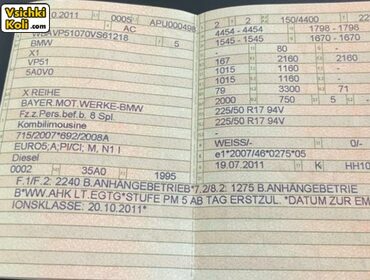 Vsichki
Koli.com
0.2011 0005 APU000498
AC
VP51070VS61218 5
BMW
X1
VP51
5A0V0
X REIHE
BAYER.MOT.WERKE-BMW
Fz.z.Pers.bef.b. 8 Spl.
Kombilimousine
715/2007*692/2008A
EURO5;A;PI/CI; M, N1 I
Diesel
0002 35A0 1995
2 2 150/4400 22
4454 - 4454 1798 - 1798
1545 - 1545 1670 - 1670
- 80 -
167 2160 2160
1015 1160 -
1015 1160 -
79 3300 71
2000 750 5 -
225/50 R17 94V
225/50 R17 94V
-
WEISS/- 0/-
e1*2007/46*0275*05
19.07.2011 K HH10
F.1/F.2: 2240 B.ANHÄNGEBETRIEB*7.2/8.2: 1275 B.ANHÄNGEBETRIE
B*WW.AHK LT.EGTG*STUFE PM 5 AB TAG ERSTZUL.*DATUM ZUR EM
IONSKLASSE: 20.10.2011*